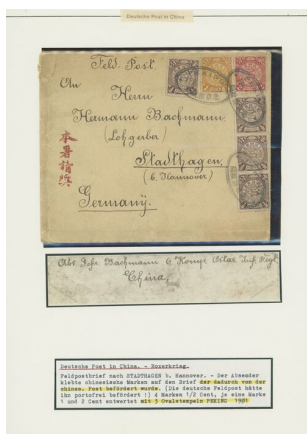 Deutsche Post in China
Feld. Post.
An
Herrn
Hermann Bachmann.
(Lohgerber)
Stadthagen,
(b. Hannover)
Germany.
China
Deutsche Post in China. - Boxerkrieg.
Feldpostbrief nach STADTHAGEN b. Hannover. - Der Absender
klebte chinesische Marken auf den Brief der dadurch von der
chines. Post befördert wurde. (Die deutsche Feldpost hätte
ihn portofrei befördert !) 4 Marken 1/2 Cent, je eine Marke
1 und 2 Cent entwertet mit 3 Ovalstempeln PEKING 1901